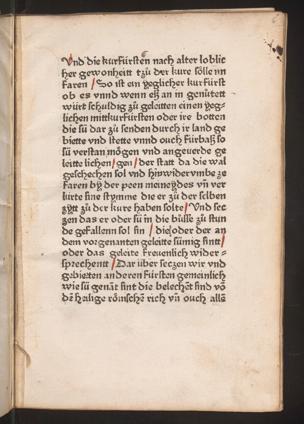 Vnd die kurfürsten nach alter loblic
her gewonheitt tzü der kure sölle nn
faren / So ist ein yeglicher kurfürst
ob es vnnd wenn eß an in genütett
würt schuldig zü geleitten einen yeg-
lichen mittkurfürsten oder ire botten
die sü dar zü senden durch ir land ge
biette vnd stette vnnd ouch fürbaß so
sü verstan mögen vnd angeuerde ge
leitte lichen / gon / der statt da die wal
geschechen sol vnd hinwider vmbe ze
faren by der peen meineydes vn ver
kürte sine stymme die er zü der selben
zytt zü der kure haben solte / Vnd sec
zen das er oder sü in die büsse zü stun
de gefallenn sol sin / die oder der an
dem vorgenanten geleitte sümig sintt /
oder das geleite freuenlich wider-
sprechentt / Dar über seczen wir vnd
gebietten anderen fürsten gemeinlich
wie sü genät sint die belechet sind võ
dē halige römischē rich vñ ouch allē